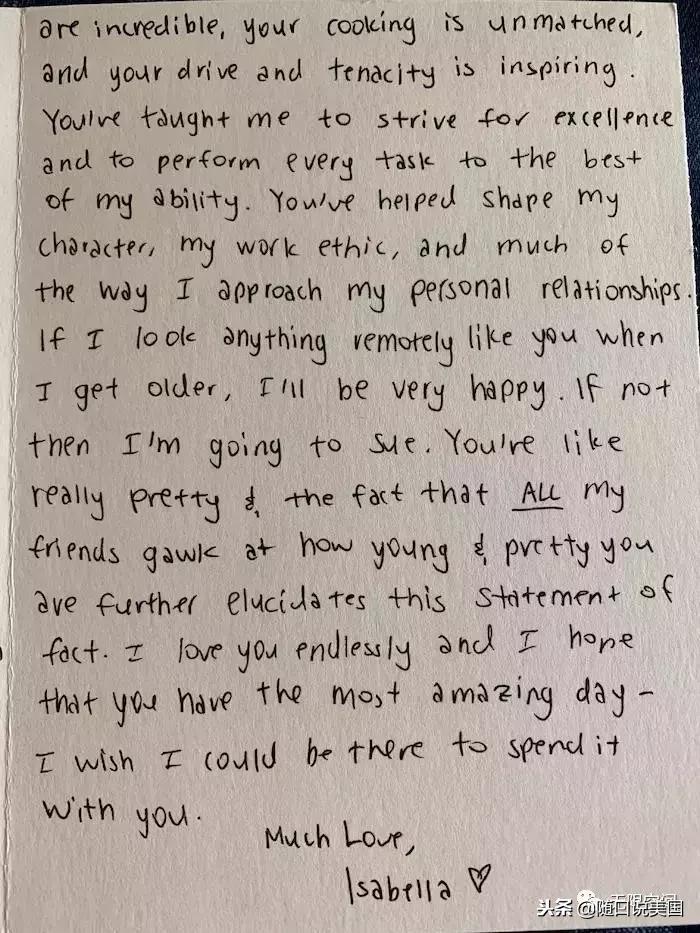 are incredible, your cooking is unmatched,
and your drive and tenacity is inspiring.
You've taught me to strive for excellence
and to perform every task to the best
of my ability. You've helped shape my
character, my work ethic, and much of
the way I approach my personal relationships.
If I look anything remotely like you when
I get older, I'll be very happy. If not
then I'm going to sue. You're like
really pretty & the fact that ALL my
friends gawk at how young & pretty you
are further elucidates this statement of
fact. I love you endlessly and I hope
that you have the most amazing day -
I wish I could be there to spend it
with you.
Much Love,
Isabella ♡
无限空间
头条 @随日说美国